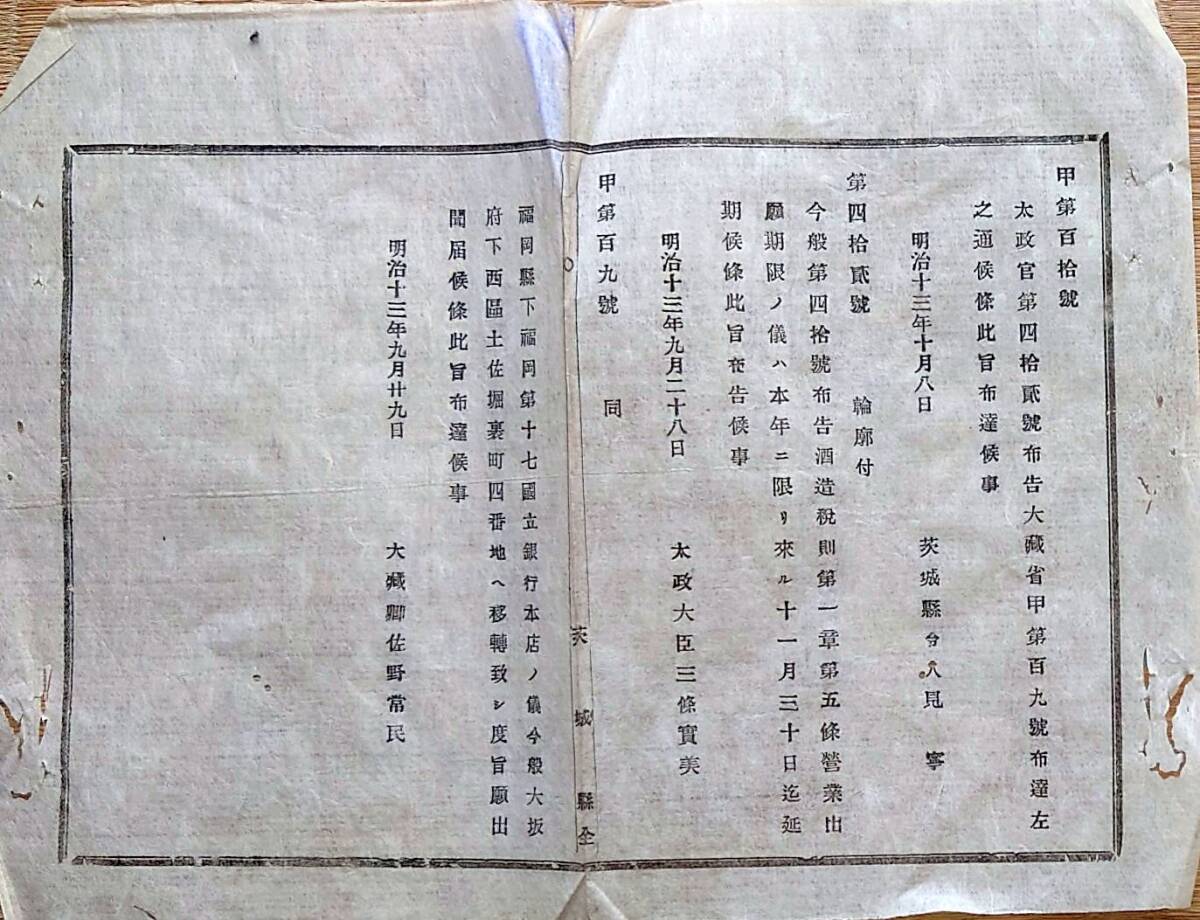 甲第百拾號
太政官第四拾貳號布告大藏省甲第百九號布達左
之通候條此旨布達候事
明治十三年十月八日
茨城縣令人見寧
第四拾貳號 輪廓付
今般第四拾號布告酒造稅則第一章第五條營業出
願期限ノ儀ハ本年ニ限リ來ル十一月三十日迄延
期候條此旨布告候事
明治十三年九月二十八日
太政大臣三條實美
甲第百九號 同
茨城縣全
福岡縣下福岡第十七國立銀行本店ノ儀今般大坂
府下西區土佐堀裏町四番地ヘ移轉致シ度旨願出
聞届候條此旨布達候事
明治十三年九月廿九日
大藏卿佐野常民